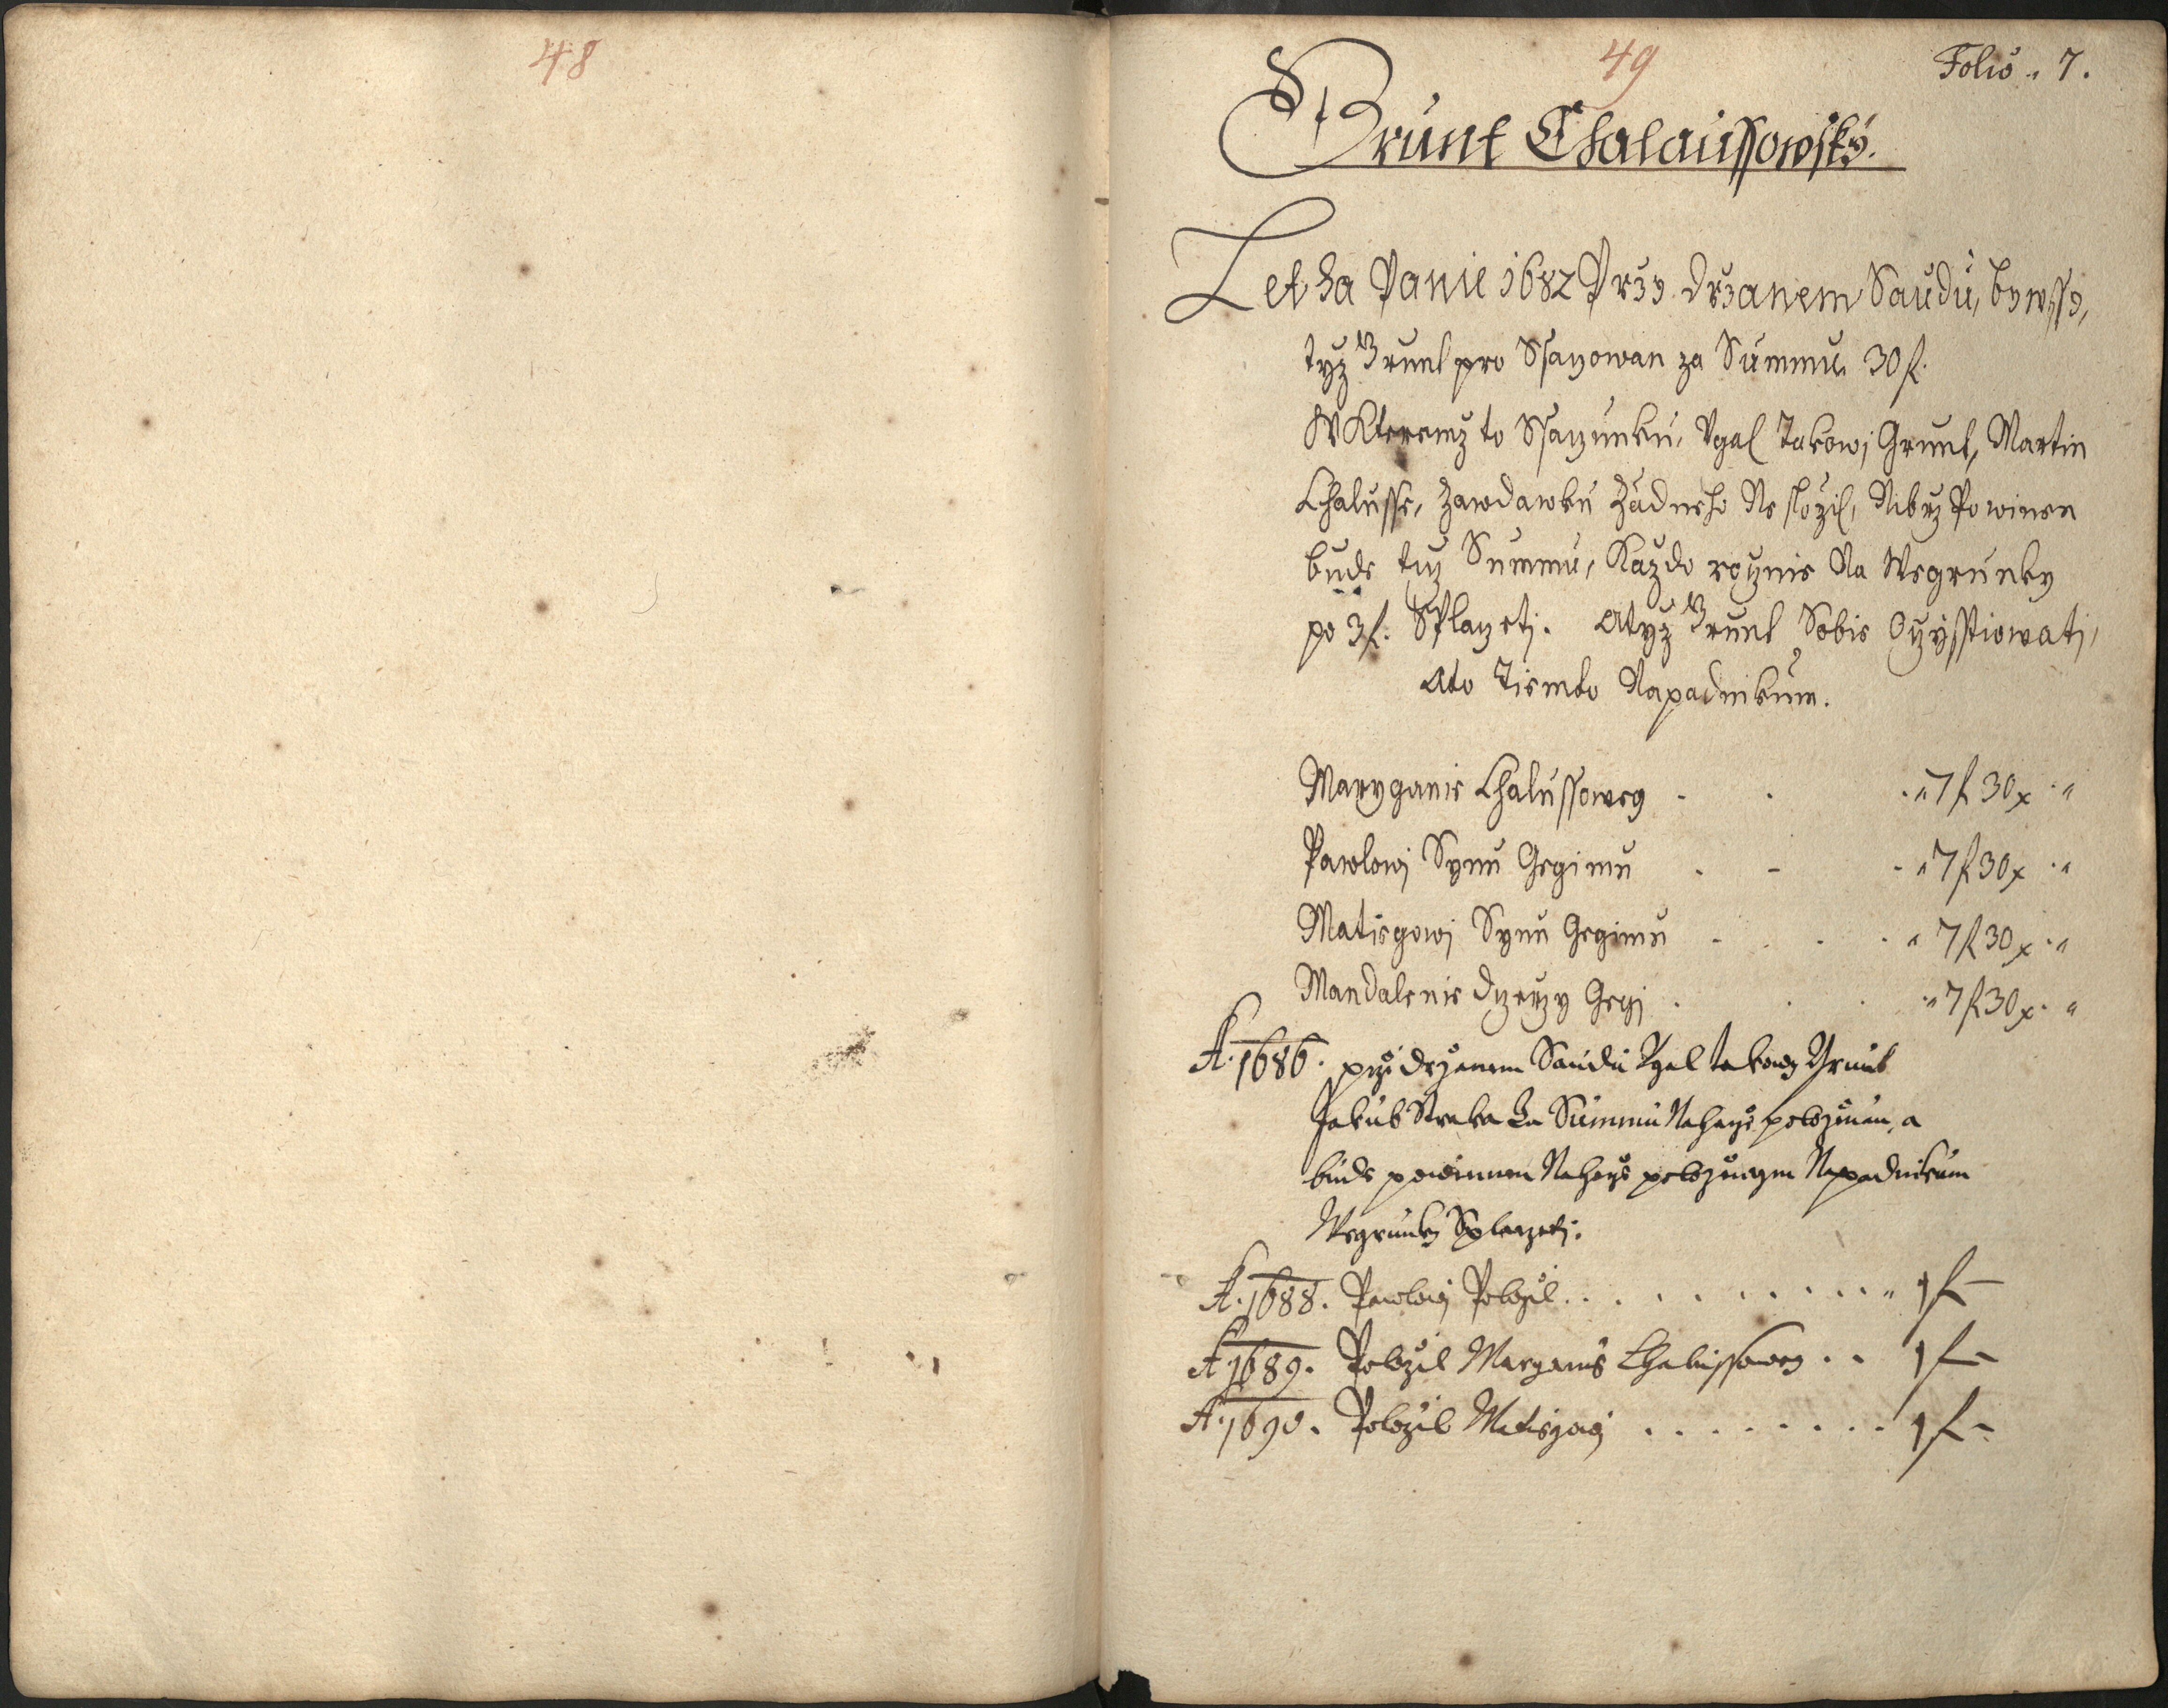 48
49
Folio 7.
Grunt Chalaussowsky.
Letha Panie 1682 Przy drzanem Saudu, bywssy,
tyz Grunt pro Ssaczowan za Summu 30 f.
W Kteremz to Ssaczunku, Vgal Takowj Grunt, Martin
Chalusse, Zawdawku Zadneho Ne slozil, Nibrz Powinen
bude tuz Summu, Kazdo rocznie Na Wegrunky
po 3 f. Splaczeti. A tyz Grunt Sobie Oczysstiowati,
Ato Tiemto Napadnikum.
Maryganie Chalussoweg - . . 7 f 30 x
Pawlowj Synu Gegimu . - . 7 f 30 x
Matiegowj Synu Gegimu . . . . 7 f 30 x
Mandalenie Dczerzy Gegj . . . 7 f 30 x
A. 1686. przi drzanem Saudu Vgal takowy Grunt
Jakub Straka Za Summu Nahorze polozenau, a
bude powinnen Nahorze polozenym Napadnikum
Wegrunky Splaczeti.
A. 1688. Pawlowj Polozil . . . . . . . . . . . 1 f —
A 1689. Polozil Maryanie Chalussowey . . 1 f —
A. 1690. Polozil Matiegowj . . . . . . . . 1 f —